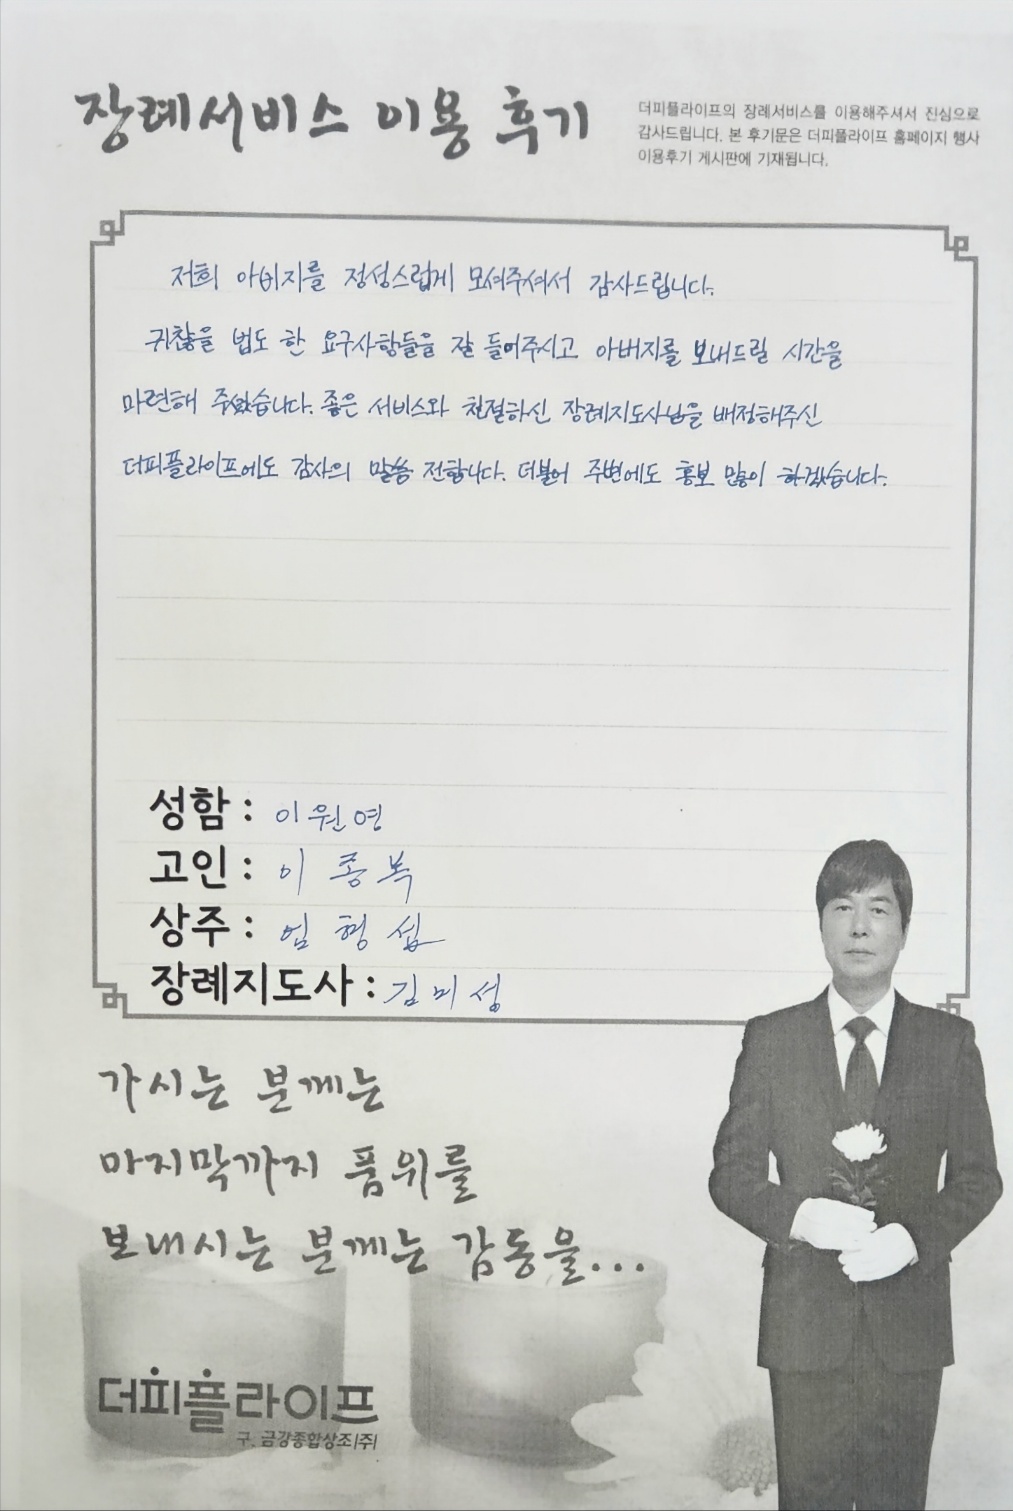 장례서비스 이용 후기
더피플라이프의 장례서비스를 이용해주셔서 진심으로
감사드립니다. 본 후기문은 더피플라이프 홈페이지 행사
이용후기 게시판에 기재됩니다.
저희 아버지를 정성스럽게 모셔주셔서 감사드립니다.
귀찮을 법도 한 요구사항들을 잘 들어주시고 아버지를 보내드릴 시간을
마련해 주셨습니다. 좋은 서비스와 친절하신 장례지도사님을 배정해주신
더피플라이프에도 감사의 말씀 전합니다. 더불어 주변에도 홍보 많이 하겠습니다.
성함 : 이원연
고인 : 이종복
상주 : 엄형섭
장례지도사 : 김미성
가시는 분께는
마지막까지 품위를
보내시는 분께는 감동을...
더피플라이프
구. 금강종합상조(주)